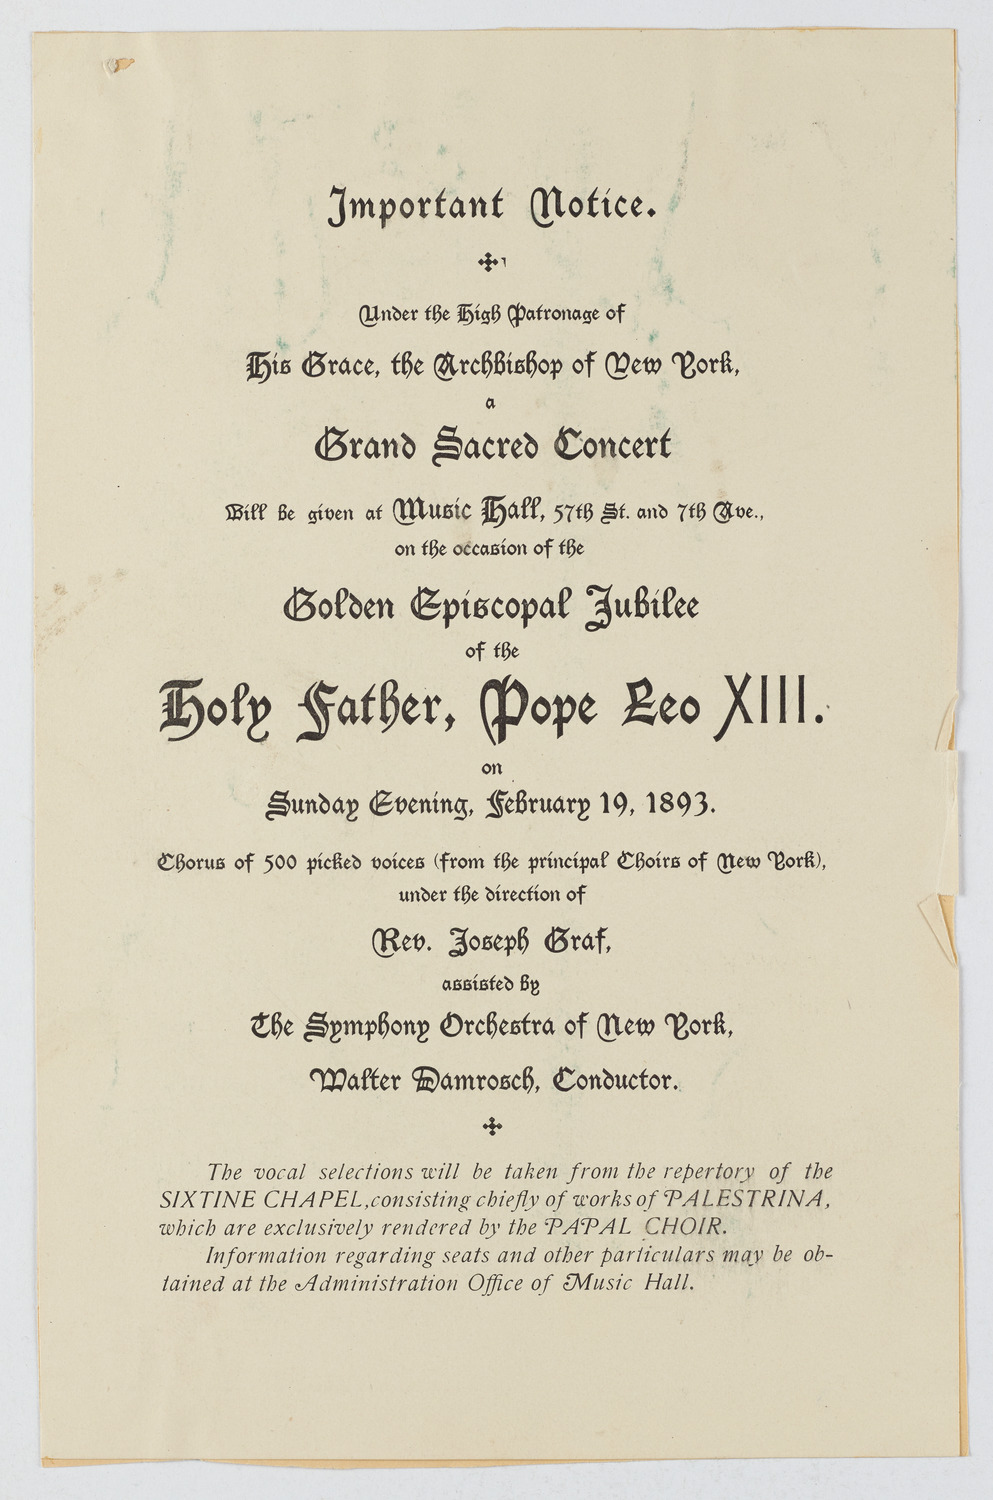 Important Notice.
Under the High Patronage of
His Grace, the Archbishop of New York,
a
Grand Sacred Concert
Will be given at Music Hall, 57th St. and 7th Ave.,
on the occasion of the
Golden Episcopal Jubilee
of the
Holy Father, Pope Leo XIII.
on
Sunday Evening, February 19, 1893.
Chorus of 500 picked voices (from the principal Choirs of New York),
under the direction of
Rev. Joseph Graf,
assisted by
The Symphony Orchestra of New York,
Walter Damrosch, Conductor.
The vocal selections will be taken from the repertory of the
SIXTINE CHAPEL, consisting chiefly of works of PALESTRINA,
which are exclusively rendered by the PAPAL CHOIR.
Information regarding seats and other particulars may be ob-
tained at the Administration Office of Music Hall.